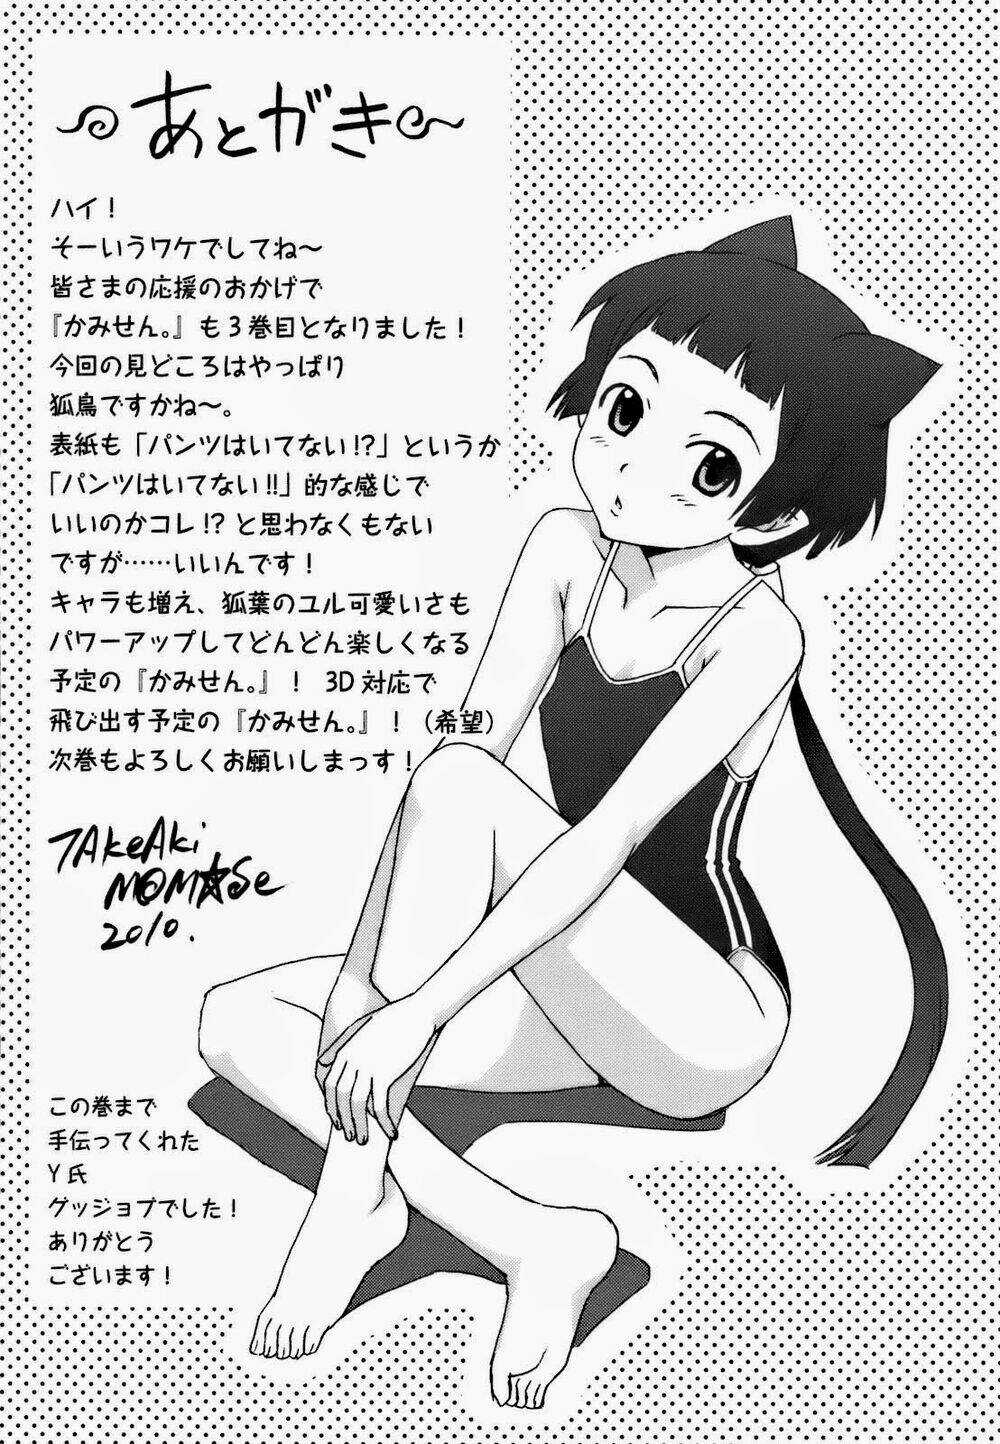 あとがき
ハイ！
そーいうワケでしてね～
皆さまの応援のおかげで
『かみせん。』も３巻目となりました！
今回の見どころはやっぱり
狐鳥ですかね～。
表紙も「パンツはいてない!?」というか
「パンツはいてない!!」的な感じで
いいのかコレ!?と思わなくもない
ですが……いいんです！
キャラも増え、狐葉のユル可愛いさも
パワーアップしてどんどん楽しくなる
予定の『かみせん。』！ 3D対応で
飛び出す予定の『かみせん。』！（希望）
次巻もよろしくお願いしまっす！
TAkeAki
MOM☆Se
2010.
この巻まで
手伝ってくれた
Y氏
グッジョブでした！
ありがとう
ございます！